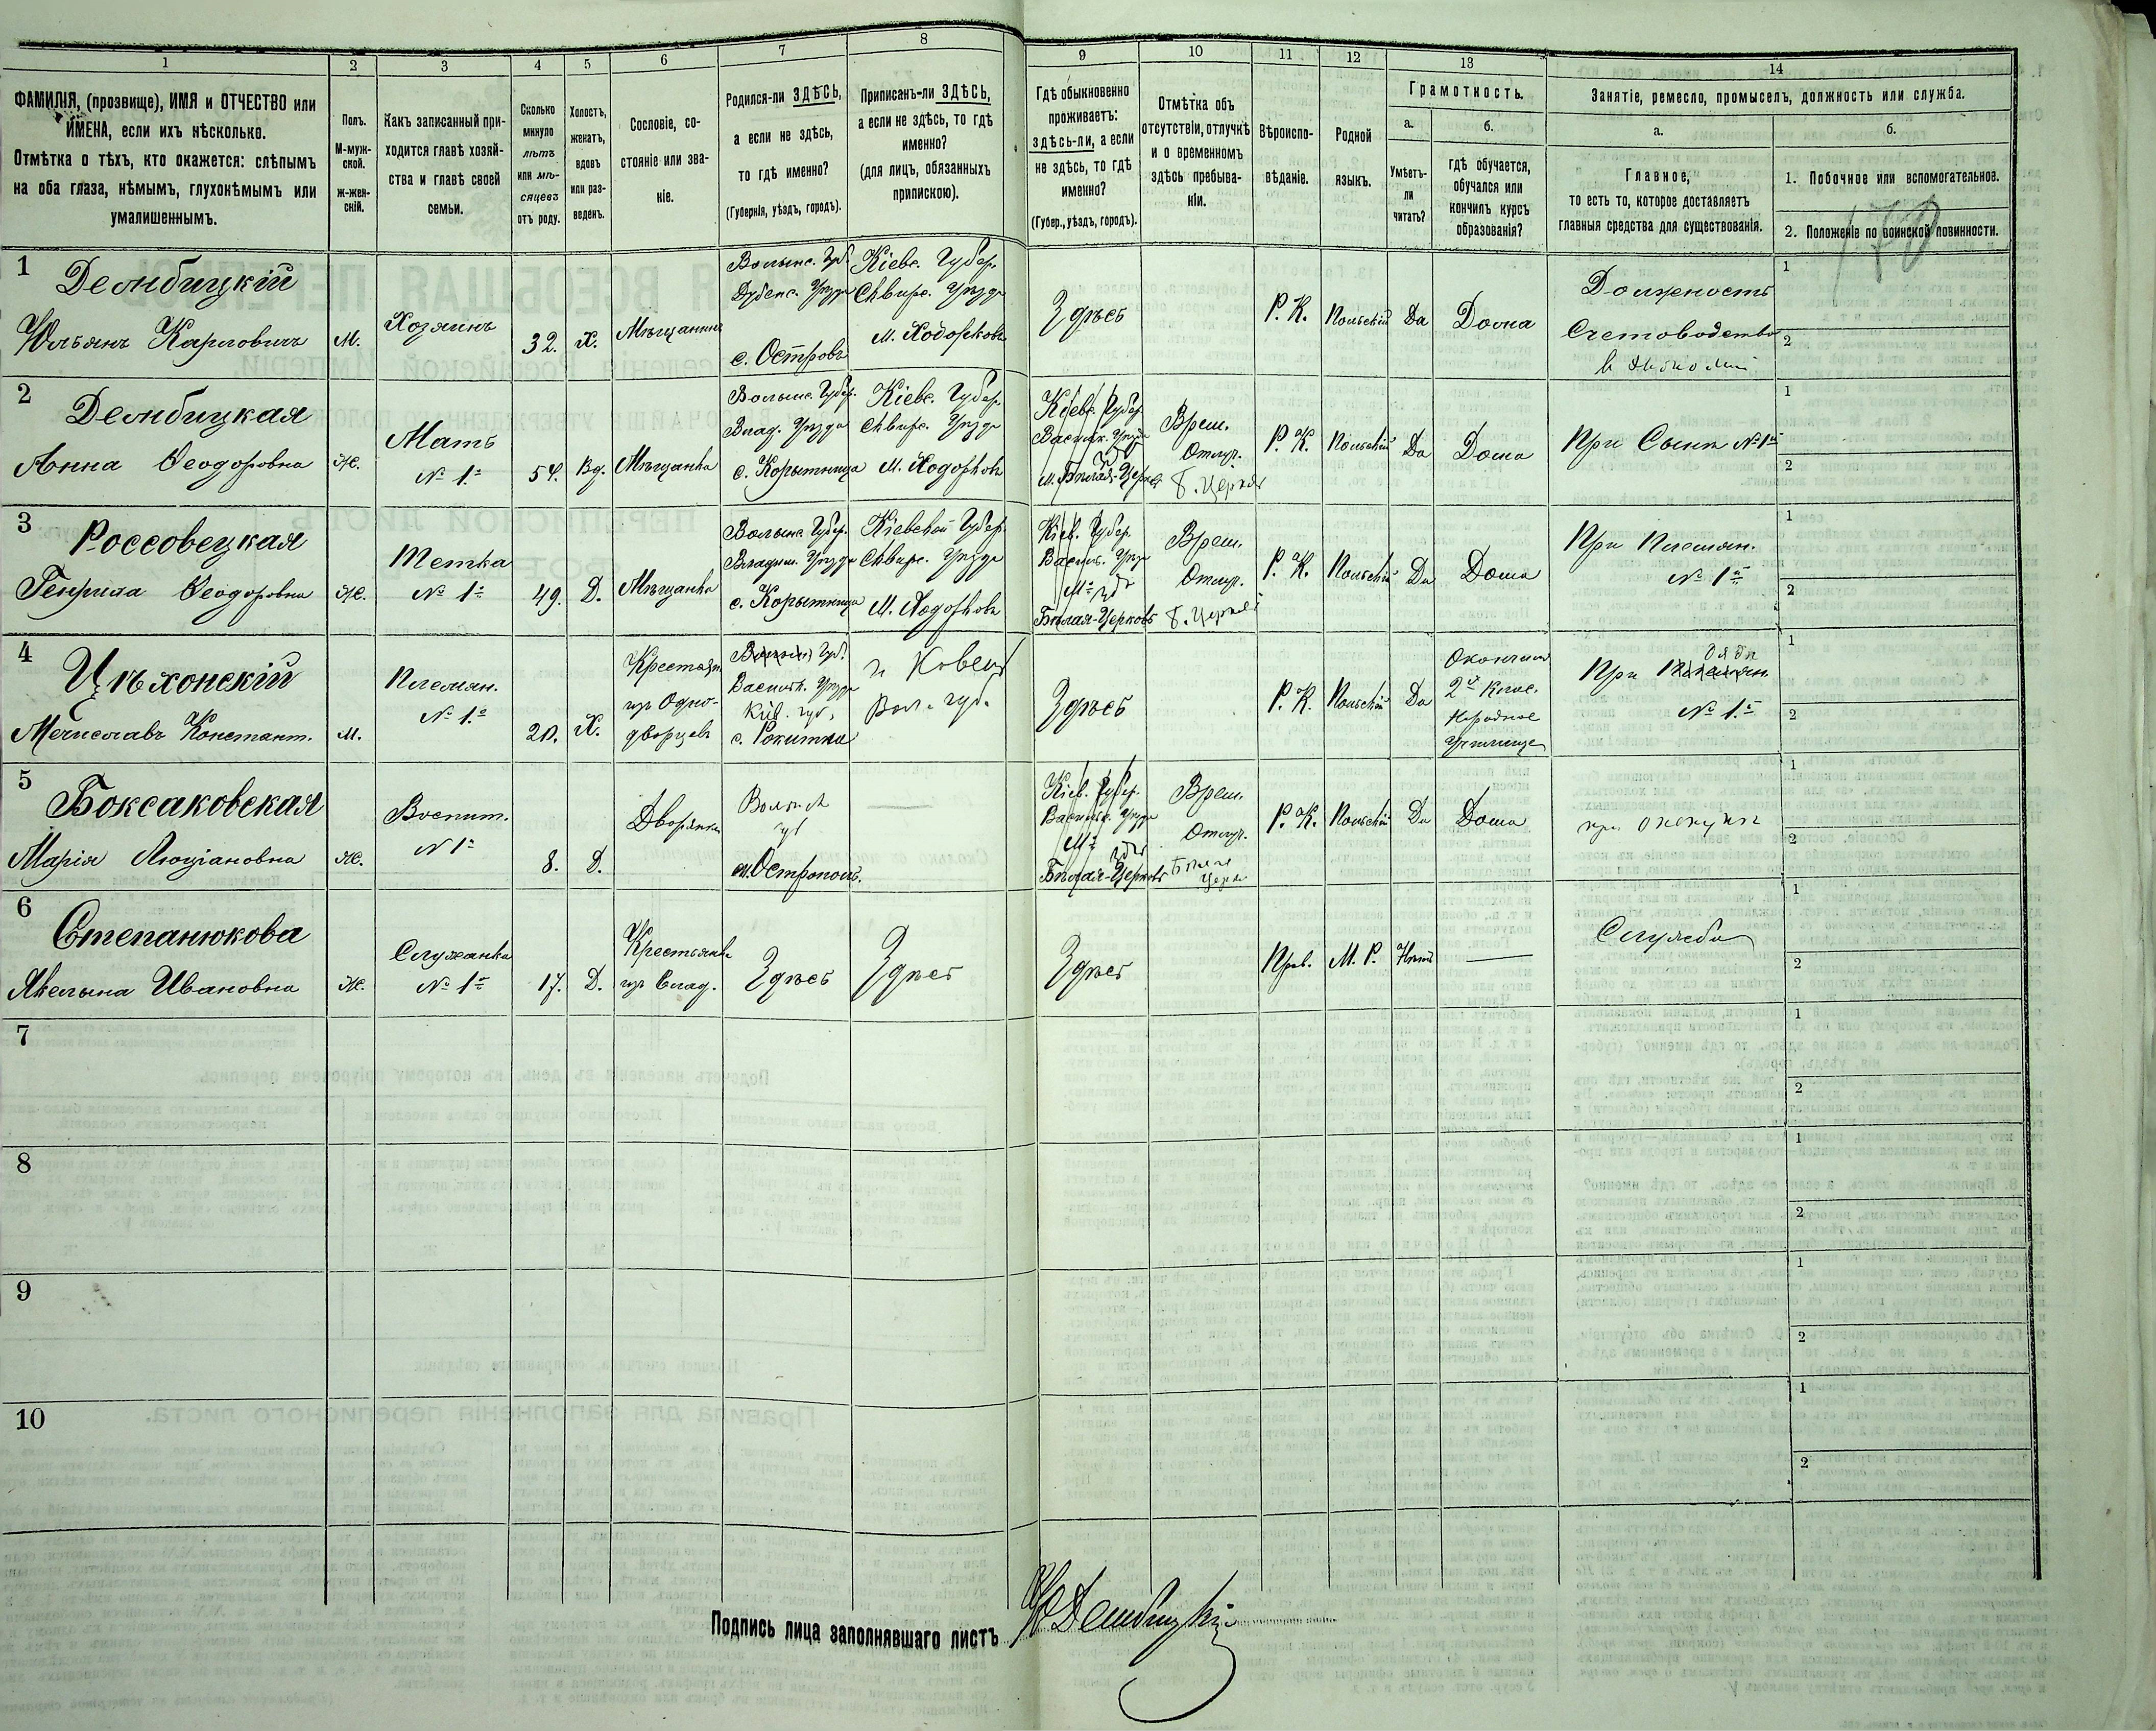 1 2 3 4 5 6 7 8 9 10 11 12 13 14
ФАМИЛІЯ, (прозвище), ИМЯ и ОТЧЕСТВО или
ИМЕНА, если ихъ нѣсколько.
Отмѣтка о тѣхъ, кто окажется: слѣпымъ
на оба глаза, нѣмымъ, глухонѣмымъ или
умалишеннымъ.
Полъ.
М-муж-
ской.
ж-жен-
скій.
Какъ записанный при-
ходится главѣ хозяй-
ства и главѣ своей
семьи.
Сколько
минуло
лѣтъ
или мѣ-
сяцевъ
отъ роду.
Холостъ,
женатъ,
вдовъ
или раз-
веденъ.
Сословіе, со-
стояніе или зва-
ніе.
Родился-ли ЗДѢСЬ,
а если не здѣсь,
то гдѣ именно?
(Губернія, уѣздъ, городъ).
Приписанъ-ли ЗДѢСЬ,
а если не здѣсь, то гдѣ
именно?
(для лицъ, обязанныхъ
припискою).
Гдѣ обыкновенно
проживаетъ:
здѣсь-ли, а если
не здѣсь, то гдѣ
именно?
(Губер., уѣздъ, городъ).
Отмѣтка объ
отсутствіи, отлучкѣ
и о временномъ
здѣсь пребыва-
ніи.
Вѣроиспо-
вѣданіе.
Родной
языкъ.
Грамотность.
а.
Умѣетъ-
ли
читать?
б.
гдѣ обучается,
обучался или
кончилъ курсъ
образованія?
Занятіе, ремесло, промыселъ, должность или служба.
а.
Главное,
то есть то, которое доставляетъ
главныя средства для существованія.
б.
1. Побочное или вспомогательное.
2. Положеніе по воинской повинности.
170
1
Дембицкій
Юльянъ Карловичъ
М.
Хозяинъ
32.
Х.
Мѣщанинъ
Волынс. Губ.
Дубенс. Уѣзда
с. Островъ
Кіевс. Губер.
Сквирс. Уѣзда
м. Ходорковъ
Здѣсь
Р. К.
Польскій
Да
Дома
Должность
Счетоводство
1
2
2
Дембицкая
Анна Ѳеодоровна
Ж.
Мать
№ 1.
54.
Вд.
Мѣщанка
Волынс. Губер.
Влад. Уѣзда
с. Корытница
Кіевс. Губер.
Сквирс. Уѣзда
м. Ходорковъ
Кіевс. Губер.
Васильк. Уѣзда
м. Бѣлая-Церковь
Врем.
Отлуч.
Б. Церковь
Р. К.
Польскій
Да
Дома
При Сынѣ № 1
1
2
3
Россовецкая
Генрика Ѳеодоровна
Ж.
Тетка
№ 1
49.
Д.
Мѣщанка
Волынс. Губер.
Владим. Уѣзда
с. Корытница
Кіевской Губер.
Сквирс. Уѣзда
М. Ходорковъ
Кіев. Губер.
Васильк. Уѣзда
М
Бѣлая-Церковь
Врем.
Отлуч.
Б. Церковь
Р. К.
Польскій
Да
Дома
При Племян.
№ 1
1
2
4
Цѣхонскій
Мечиславъ Констант.
М.
Племян.
№ 1
20.
Х.
Крестьян.
изъ Одно-
дворцевъ
Губ.
Васильк. Уѣзда
Кіев. губ.
с. Рокитна
г. Ковель
Вол. губ.
Здѣсь
Р. К.
Польскій
Да
Окончилъ
2 клас.
Народное
Училище
При дядѣ
№ 1
1
2
5
Боксаковская
Марія Люціановна
Ж.
Воспит.
№ 1
8.
Д.
Дворянка
Волын.
губ
м. Острополь.
Кіев. Губер.
Васильк. Уѣзда
М
Бѣлая-Церковь
Врем.
Отлуч.
Бѣлая
Церковь
Р. К.
Польскій
Да
Дома
при опекунѣ
1
2
6
Степанюкова
Якелына Ивановна
Ж.
Служанка
№ 1
17.
Д.
Крестьянка
изъ Влад.
Здѣсь
Здѣсь
Здѣсь
Прав.
М. Р.
Нѣтъ
Служба
1
2
7
1
2
8
1
2
9
1
2
10
1
2
Подпись лица заполнявшаго листъ Ю Дембицкій